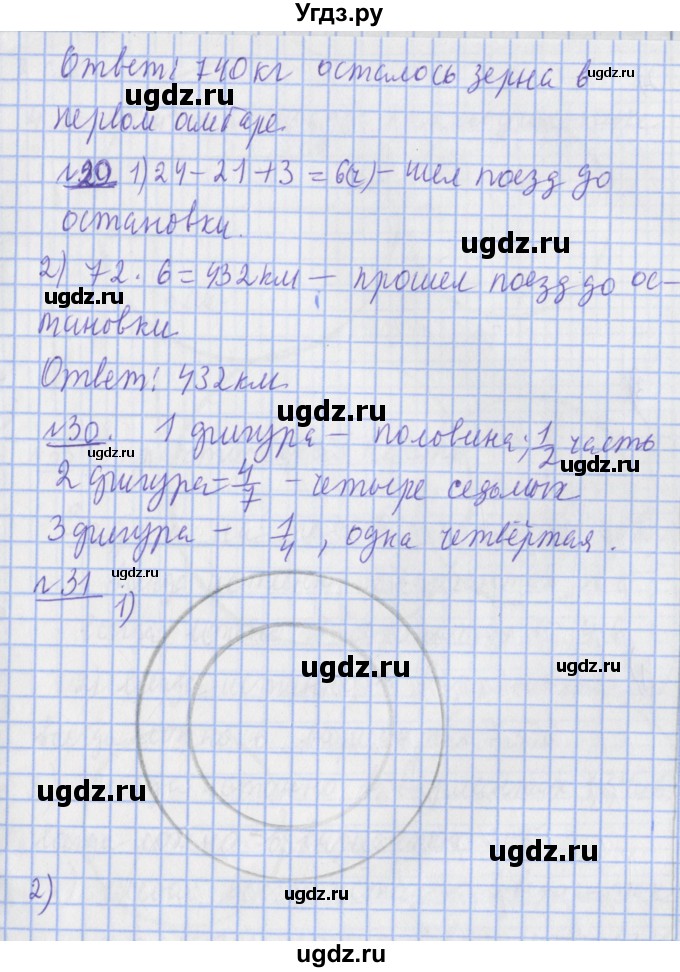 Угдз.ру
Ответ: 740 кг осталось зерна в
ugdz.ru
ugdz.ru
первом амбаре.
№20 1) 24-21+3=6(ч)- шел поезд до
ugdz.ru
остановки.
ugdz.ru
2) 72·6=432км — прошел поезд до ос-
ugdz.ru
ugdz.ru
тановки
Ответ: 432км.
ugdz.ru
№30. 1 фигура - половина; 1/2 часть
ugdz.ru
ugdz.ru
2 фигура = 4/7 - четыре седьмых
3 фигура - 1/4, одна четвёртая.
ugdz.ru
№31 1)
ugdz.ru
ugdz.ru
ugdz.ru
ugdz.ru
ugdz.ru
2)
ugdz.ru
ugdz.ru